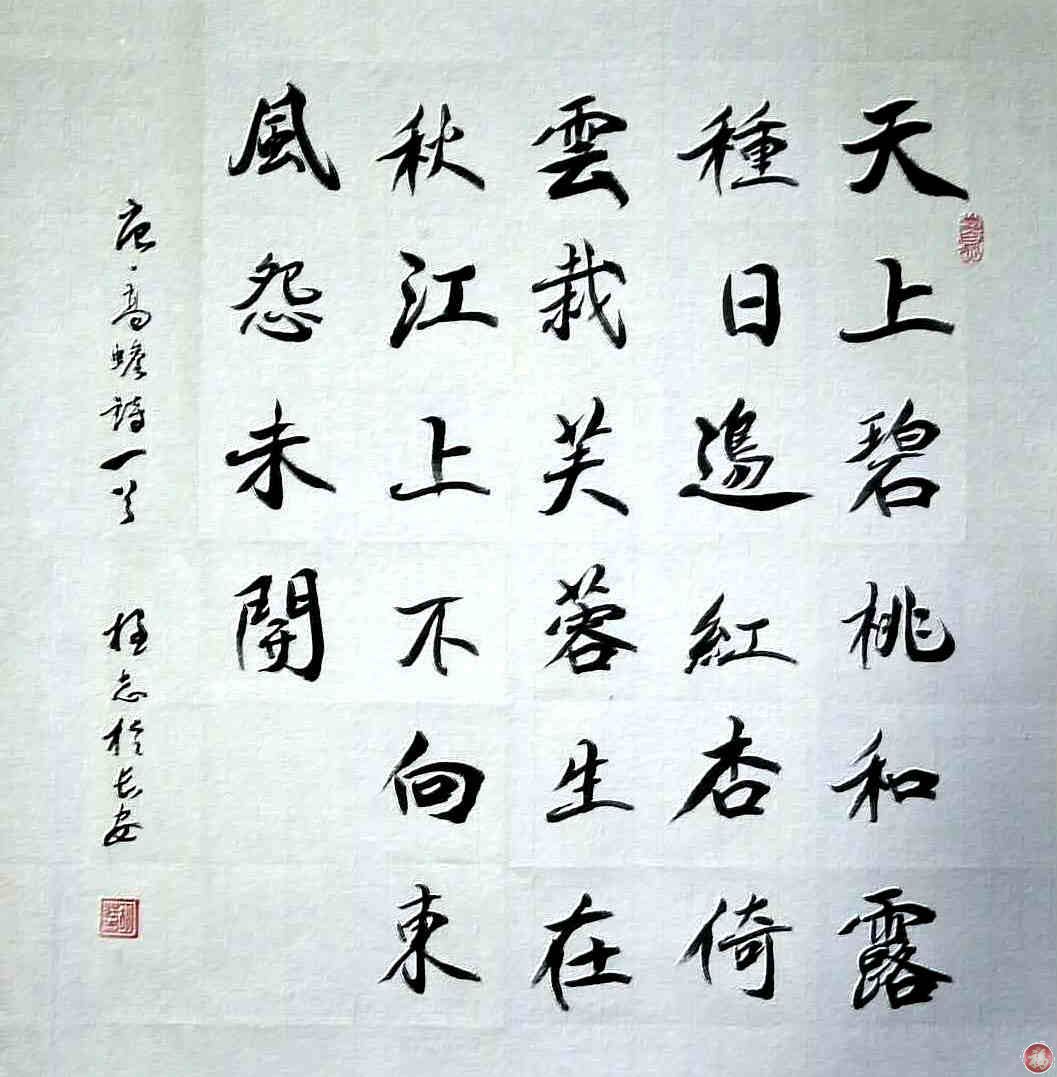 天上碧桃和露
種日邊紅杏倚
雲栽芙蓉生在
秋江上不向東
風怨未開
唐·高蟾詩一首
志於长安